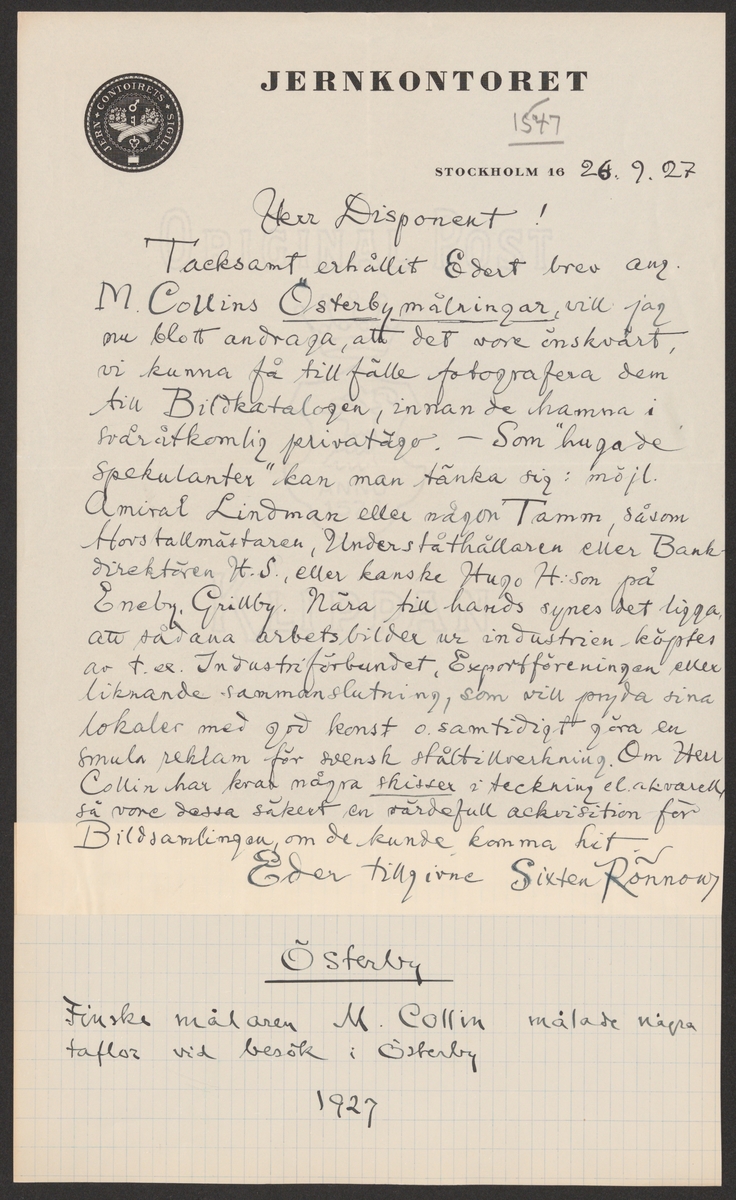 JERNKONTORET
JERN * CONTOIRETS * SIGILL
1547
STOCKHOLM 16 26. 9. 27
Herr Disponent !
Tacksamt erhållit Edert brev ang.
M. Collins Österbymålningar, vill jag
nu blott andraga, att det vore önskvärt,
vi kunna få tillfälle fotografera dem
till Bildkatalogen, innan de hamna i
svåråtkomlig privatägo. — Som "hugade
spekulanter" kan man tänka sig: möjl.
Amiral Lindman eller någon Tamm, såsom
Hovstallmästaren, Underståthållaren eller Bank-
direktören H.S., eller kanske Hugo H:son på
Eneby, Grillby. Nära till hands synes det ligga,
att sådana arbetsbilder ur industrien köptes
av t. ex. Industriförbundet, Exportföreningen eller
liknande sammanslutning, som vill pryda sina
lokaler med god konst o. samtidigt göra en
smula reklam för svensk ståltillverkning. Om Herr
Collin har kvar några skisser i teckning el. akvarell,
så vore dessa säkert en värdefull ackvisition för
Bildsamlingen, om de kunde komma hit.
Eder tillgivne Sixten Rönnow
Österby
Finske målaren M. Collin målade några
taflor vid besök i Österby
1927